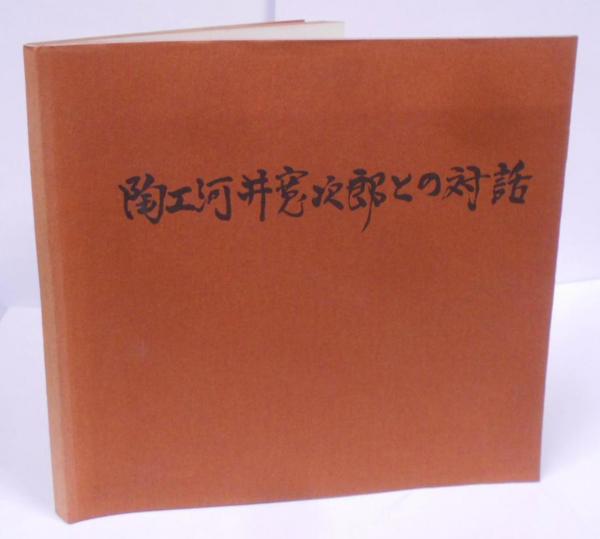 陶工河井寛次郎との対話